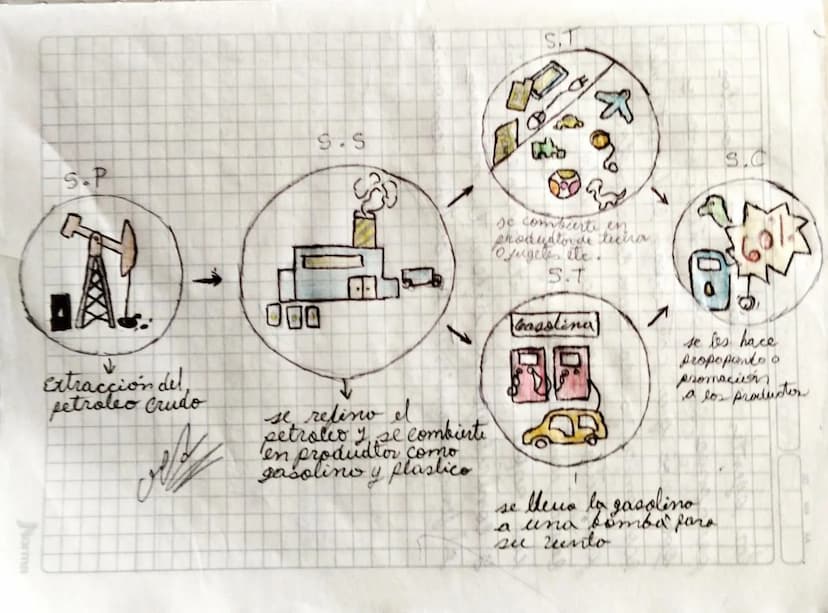 S.P
Extracción del
petroleo crudo
S.S
se refino el
petroleo y se combierte
en productos como
gasolino y plastico
S.T
se combierte en
productos de
o jugetes etc.
S.T
Gasolina
se lleva la gasolino
a una bomba para
su vento
S.C
60%
se les hace
o
promoción
a los productos
Norma